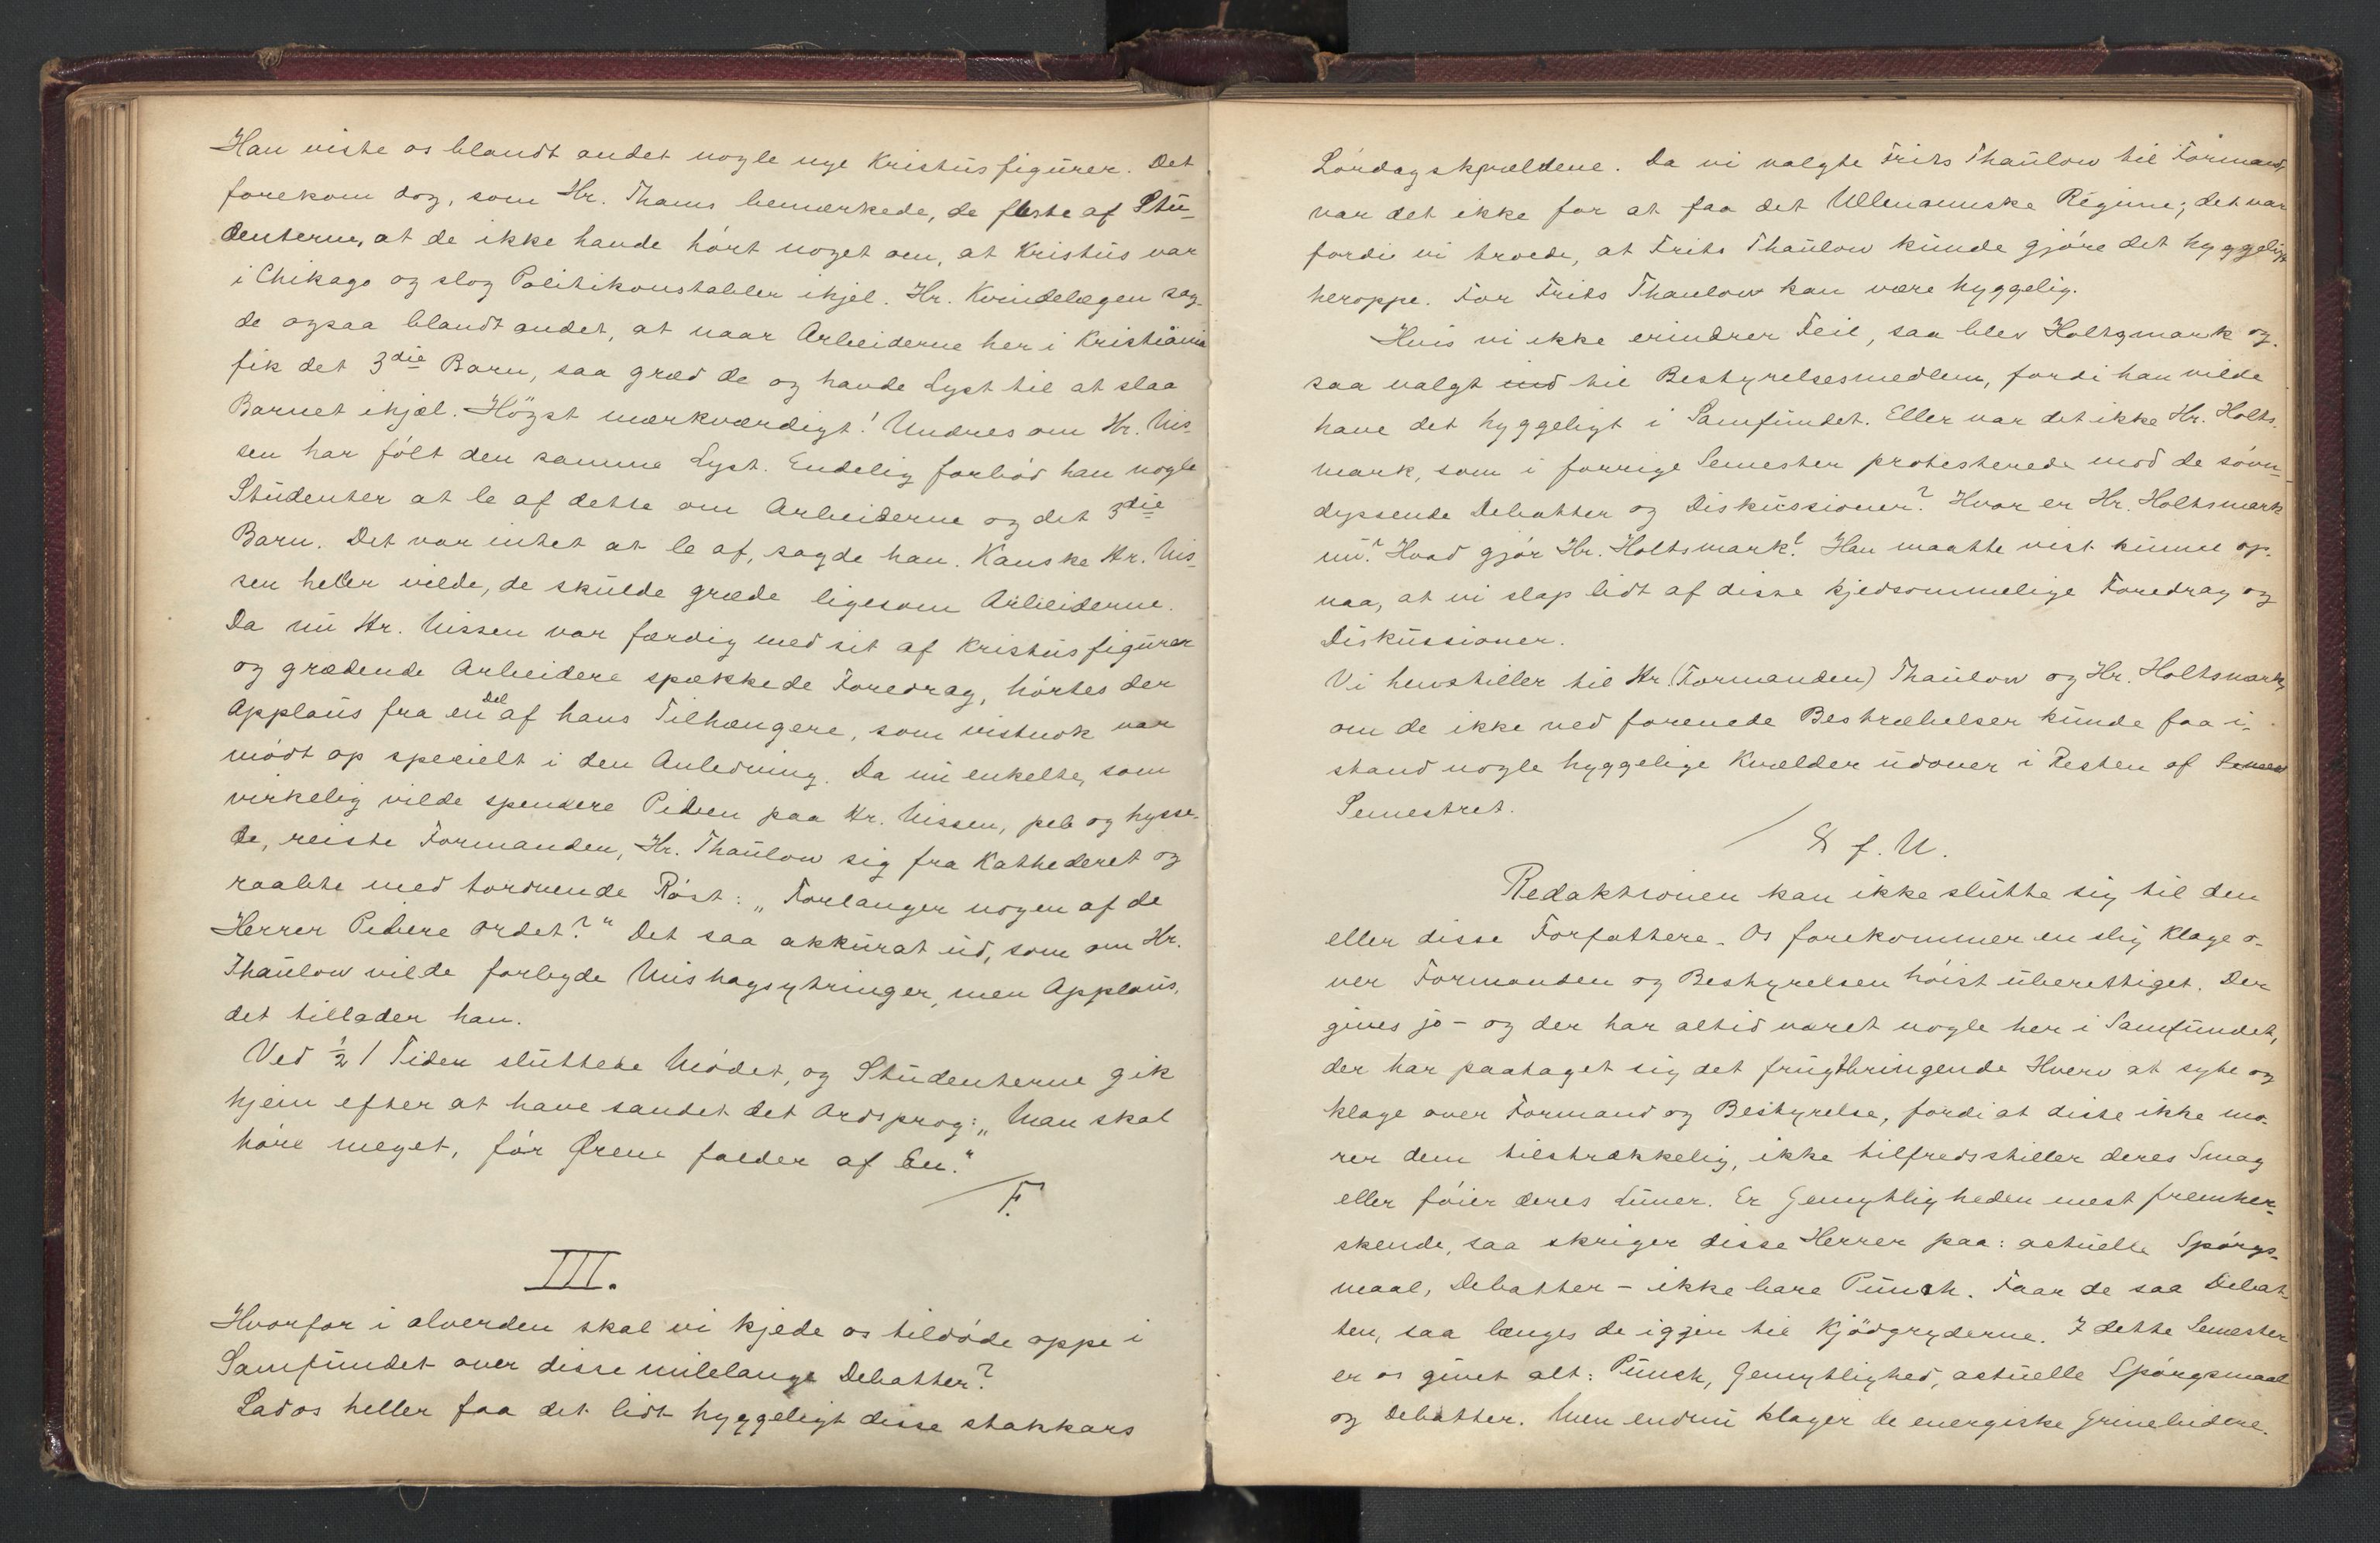 Han viste os blandt andet nogle nye Kristusfigurer. Det
forekom dog, som Hr. Thams bemærkede, de fleste af Stu-
denterne, at de ikke havde hørt noget om, at Kristus var
i Chikago og slog Politikonstabler ihjel. Hr. Kvindelægen sag-
de ogsaa blandt andet, at naar Arbeiderne her i Kristiania
fik det 3die Barn, saa græd de og havde Lyst til at slaa
Barnet ihjæl. Högst mærkværdigt! Undres om Hr. Nis-
sen har følt den samme Lyst. Endelig forbød han nogle
Studenter at le af dette om Arbeiderne og det 3die
Barn. Det var intet at le af, sagde han. Kanske Hr. Nis-
sen heller vilde, de skulde græde ligesom Arbeiderne.
Da nu Hr. Nissen var færdig med sit af Kristusfigurer
og grædende Arbeidere spækkede Foredrag, hørtes der
Applaus fra en Del af hans Tilhængere, som vistnok var
mødt op specielt i den Anledning. Da nu enkelte, som
virkelig vilde spendere Piben paa Hr. Nissen, peb og hysse-
de, reiste Formanden, Hr. Thaulow sig fra Kathederet og
raabte med tordnende Røst: „Forlanger nogen af de
Herrer Pibere Ordet?" Det saa akkurat ud, som om Hr.
Thaulow vilde forbyde Mishagsytringer, men Applaus,
det tillader han.
Ved ½ 1 Tiden sluttede Mødet, og Studenterne gik
hjem efter at have sandet det Ordsprog: „Man skal
høre meget, før Ørene falder af En."
F.
III.
Hvorfor i alverden skal vi kjede os tildøde oppe i
Samfundet over disse milelange Debatter?
Lad os heller faa det lidt hyggeligt disse stakkars
Lørdagskvældene. Da vi valgte Frits Thaulow til Formand,
var det ikke for at faa det Ullmannske Régime; det var
fordi vi troede, at Frits Thaulow kunde gjøre det hyggeligt
heroppe. For Frits Thaulow kan være hyggelig.
Hvis vi ikke erindrer Feil, saa blev Holtsmark og-
saa valgt ind til Bestyrelsesmedlem, fordi han vilde
have det hyggeligt i Samfundet. Eller var det ikke Hr. Holts-
mark, som i forrige Semester protesterede mod de søvn-
dyssende Debatter og Diskussioner? Hvor er Hr. Holtsmark
nu? Hvad gjør Hr. Holtsmark? Han maatte vist kunne op-
naa, at vi slap lidt af disse kjedsommelige Foredrag og
Diskussioner.
Vi henstiller til Hr. (Formanden) Thaulow og Hr. Holtsmark,
om de ikke ved forenede Bestræbelser kunde faa i-
stand nogle hyggelige Kvælder udover i Resten af
Semestret.
& f. N.
Redaktionen kan ikke slutte sig til den
eller disse Forfattere. Os forekommer en slig Klage o-
ver Formanden og Bestyrelsen høist uberettiget. Der
gives jo – og der har altid været nogle her i Samfundet,
der har paataget sig det frugtbringende Hverv at syte og
klage over Formand og Bestyrelse, fordi at disse ikke mo-
rer dem tilstrækkelig, ikke tilfredsstiller deres Smag
eller føier deres Luner. Er Gemytligheden mest fremher-
skende, saa skriger disse Herrer paa: aktuelle Spørgs-
maal, Debatter – ikke bare Punch. Faar de saa Debat-
ten, saa længes de iggjen til Kjödgryderne. I dette Semester
er os givet alt: Punch, Gemytlighed, aktuelle Spørgsmaal
og Debatter. Men endnu klager de energiske Grinebidere.